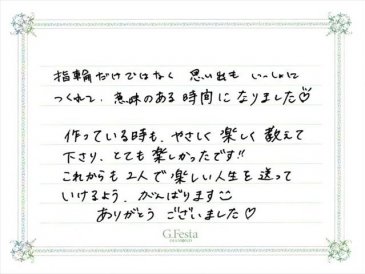 指輪だけではなく 思い出も いっしょに
つくれて、意味のある 時間に なりました♡
作っている時も、やさしく 楽しく 教えて
下さり、とても 楽しかったです!!
これからも 2人で 楽しい 人生を 送って
いけるよう、がんばります☺
ありがとう ございました♡
G.Festa